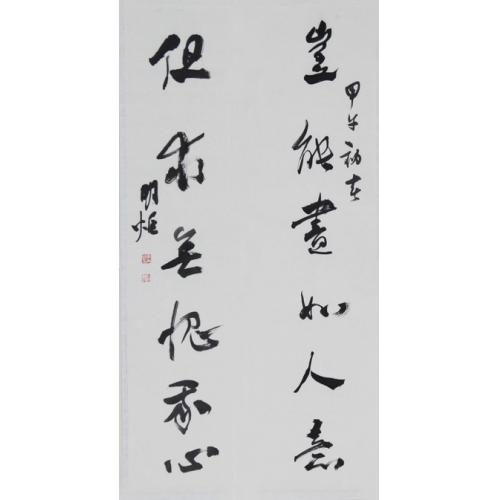 豈能盡如人意
甲午初春
但求無愧我心
明炬